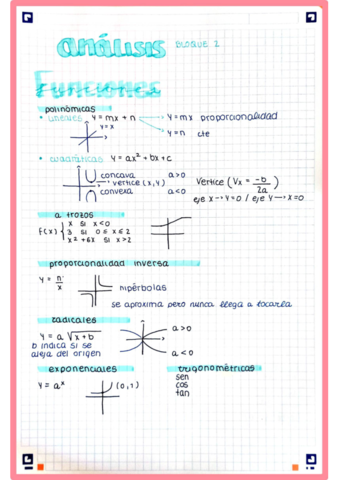 análisis BLOQUE 2
Funciones
polinómicas
• lineales y = mx + n y = mx proporcionalidad
y = x
y = n cte
• cuadráticas y = ax² + bx + c
concava a>0
vertice (x,y)
convexa a<0
Vertice (Vx = -b/2a)
eje x → y=0 / eje y → x=0
a trozos
f(x) { x si x<0
3 si 0 ≤ x ≤ 2
x² + 6x si x>2
proporcionalidad inversa
y = n/x
hipérbolas
se aproxima pero nunca llega a tocarla
radicales
y = a √x+b
b indica si se
aleja del origen
a>0
a<0
exponenciales
y = aˣ
(0,1)
trigonométricas
sen
cos
tan